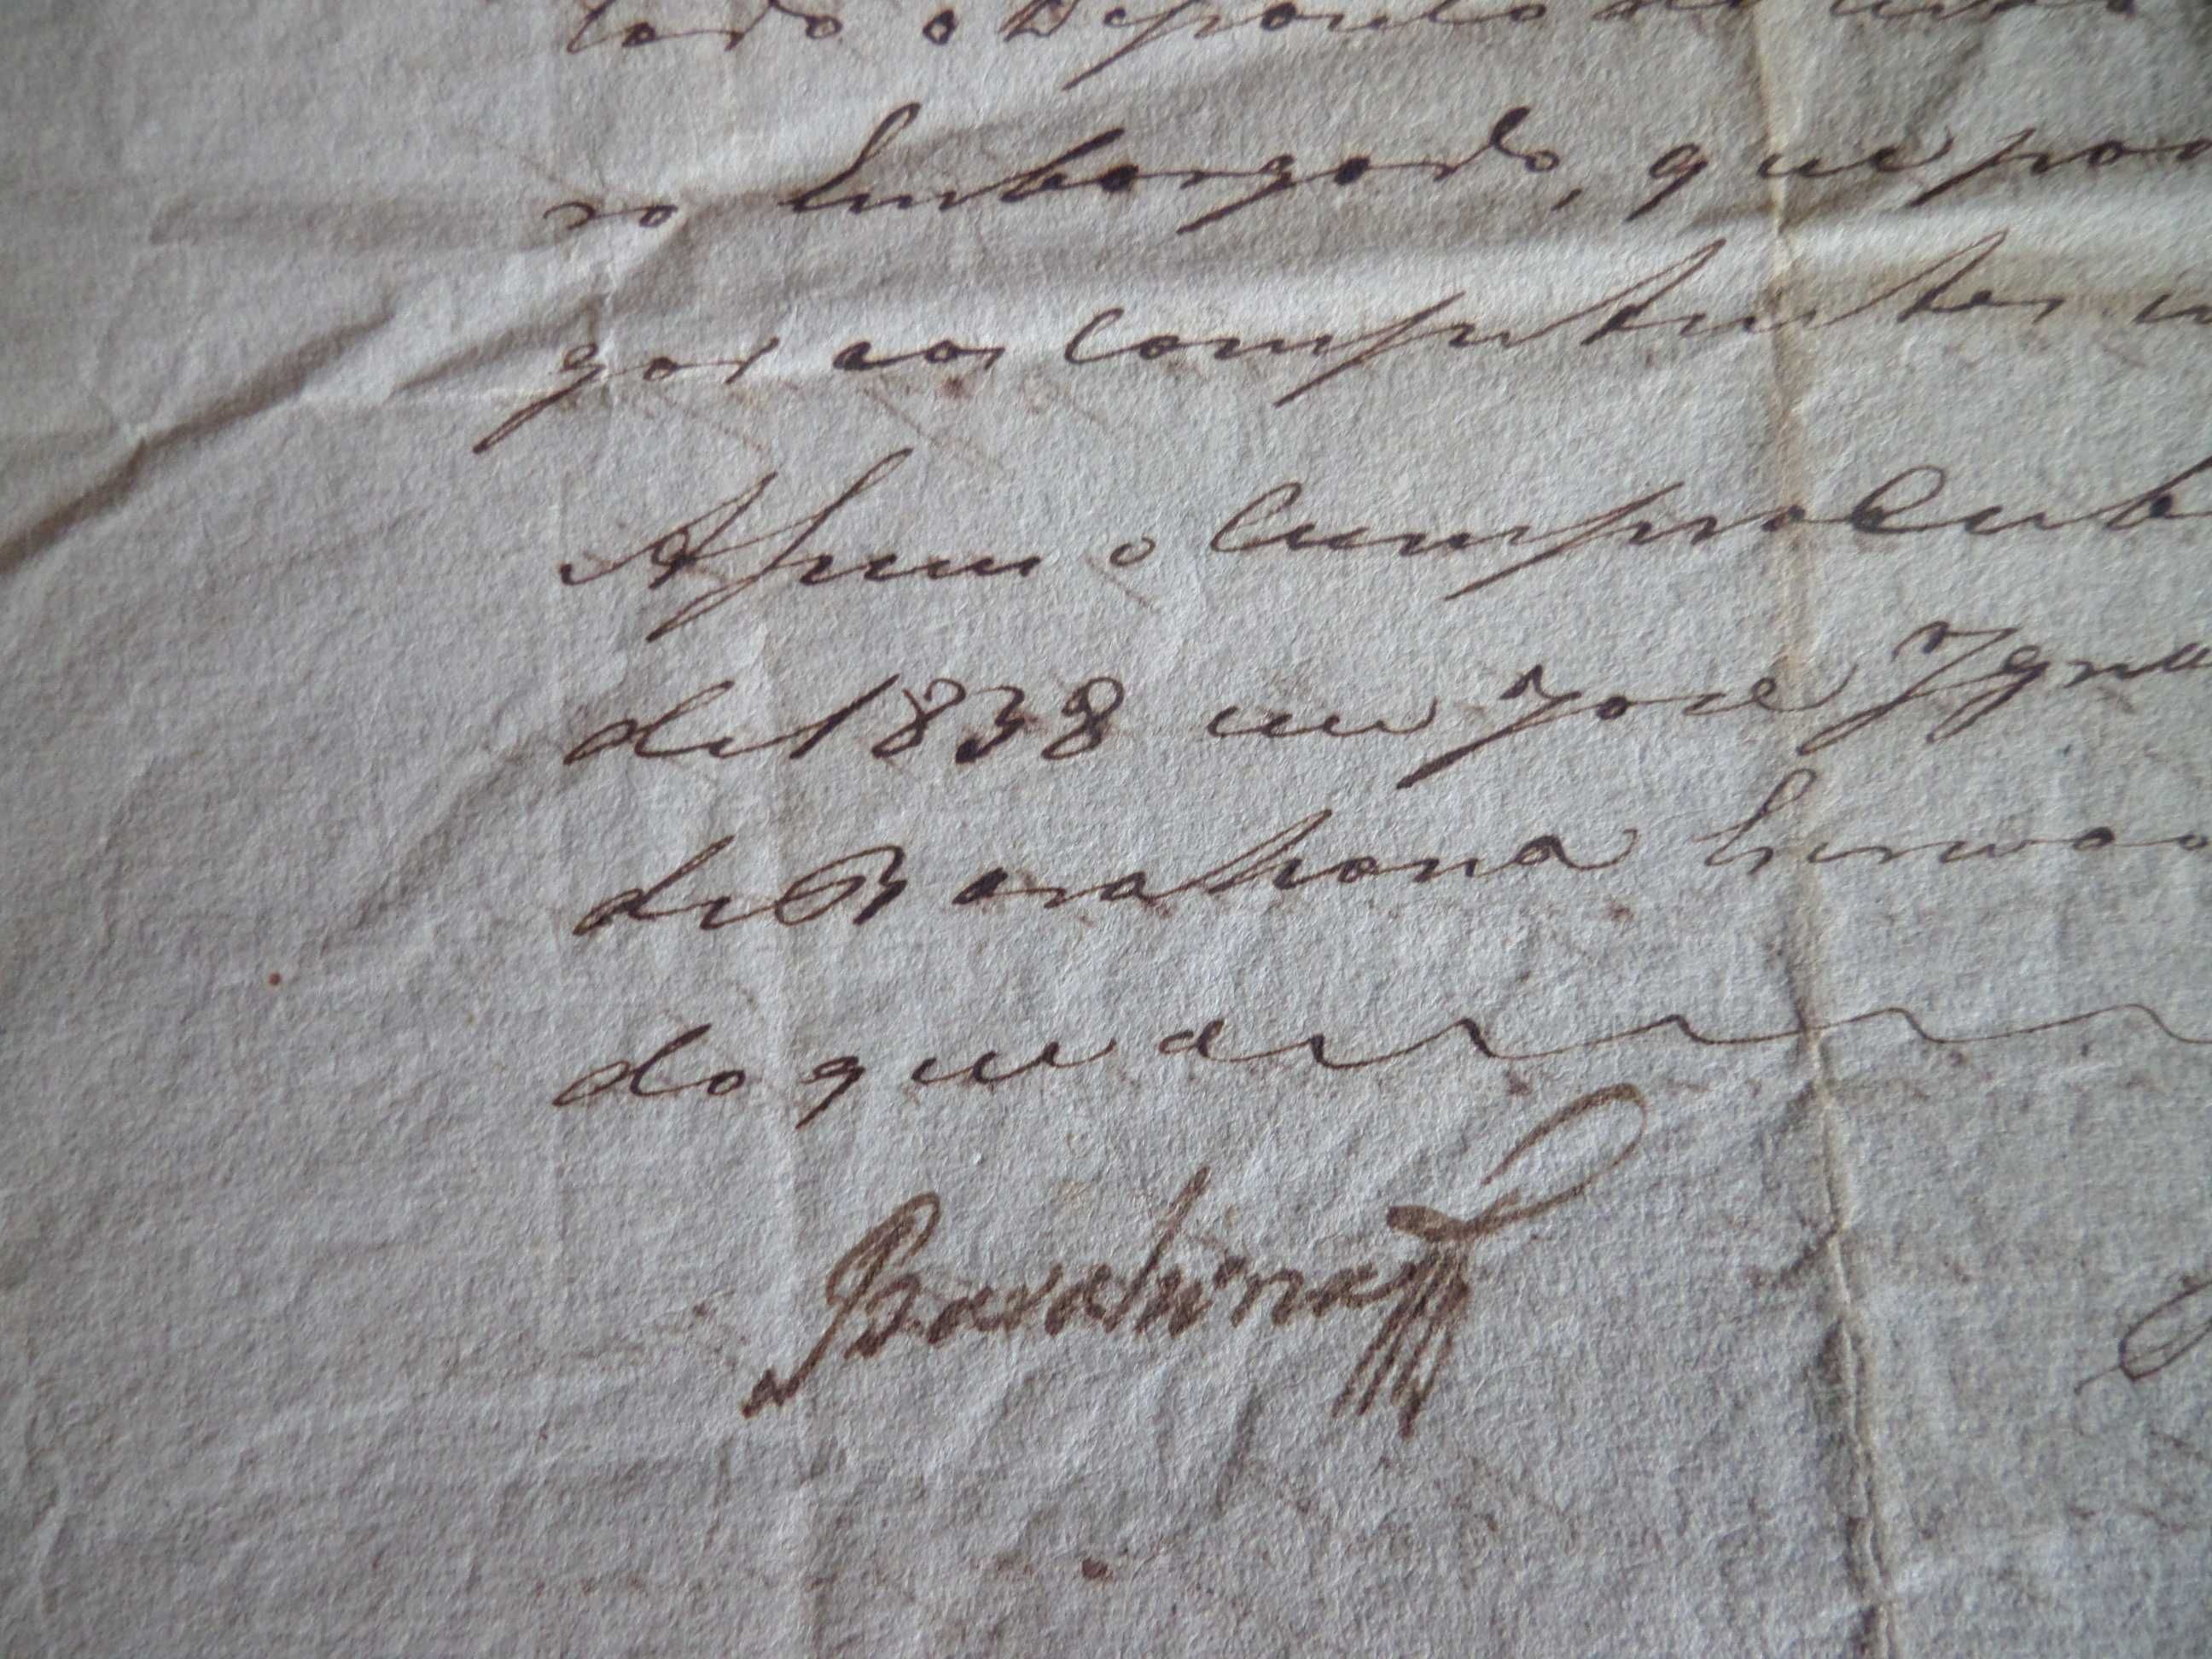 tado o Deposito
ro Embargado, que
gar aos Competentes
Assim o Cumpra Cuba
de 1838 eu Jose Igna
de Barahona Escrivao
do que a
Barahona